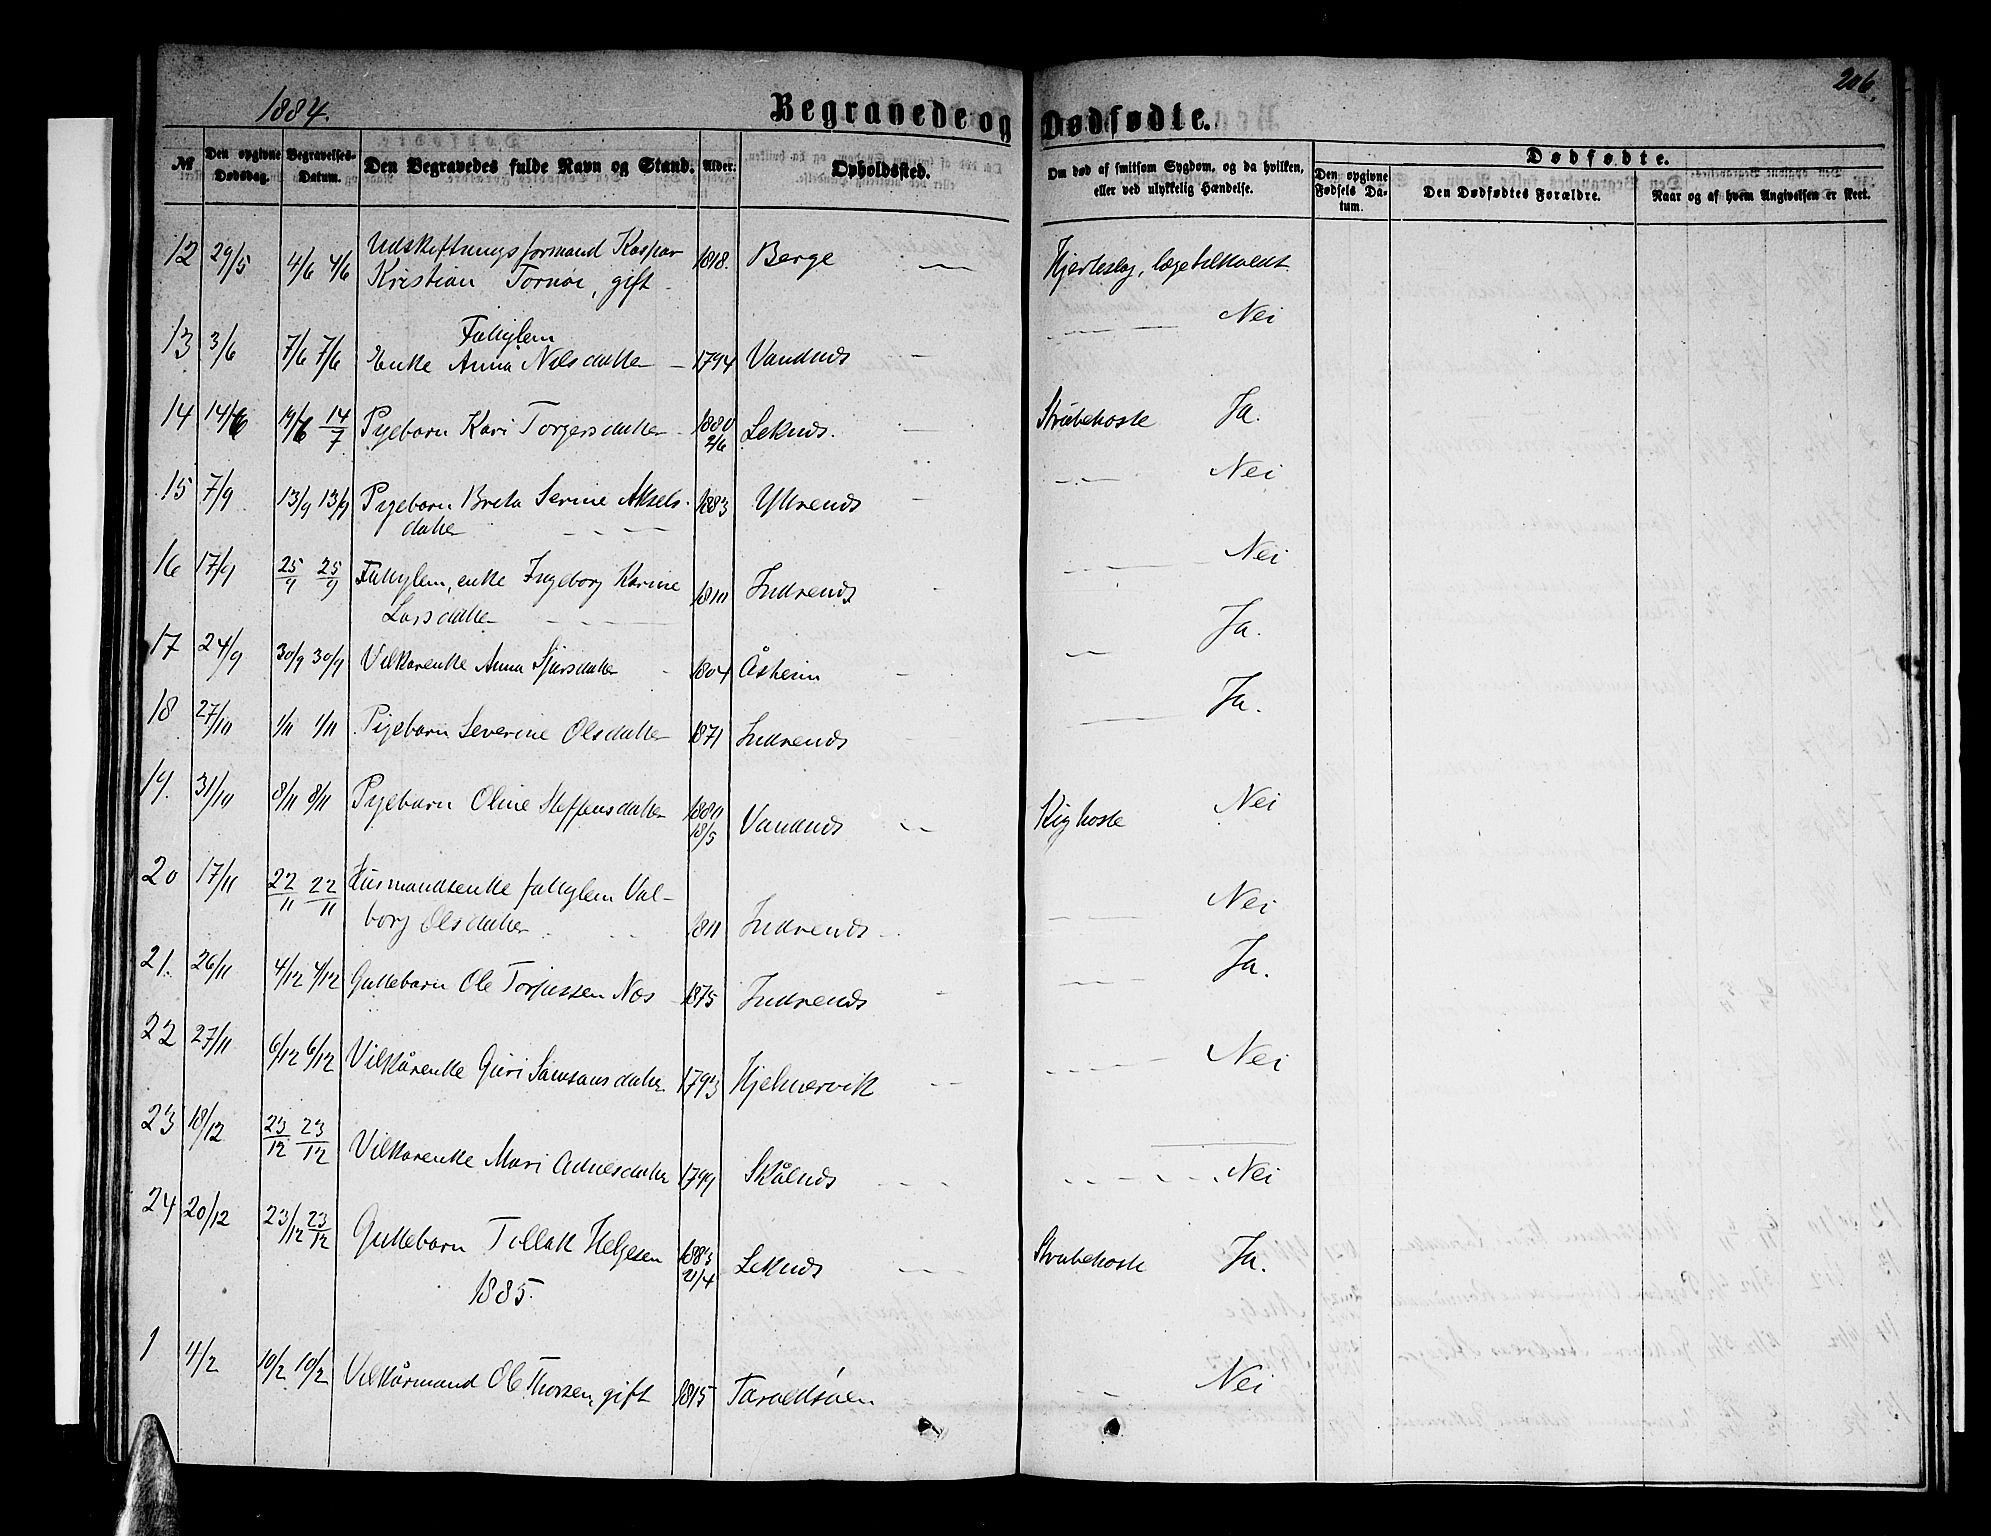 1884.
Begravede og Dødfødte.
206.
№
Den opgivne Dødsdag.
Begravelses-Datum.
Den Begravedes fulde Navn og Stand.
Alder.
Opholdssted.
Om død af smitsom Sygdom, og da hvilken, eller ved ulykkelig Hændelse.
Dødfødte.
Den opgivne Fødsels Datum.
Den Dødfødtes Forældre.
Naar og af hvem Angivelsen er skeet.
12 29/5 4/6 4/6 Udskiftningsformand Kaspar 1818. Berge — Hjerteslag, lægetilkaldt
Kristian Tornøe, gift
Nei
13 3/6 7/6 7/6 Fattiglem
Enke Anna Nilsdatter 1794 Vandnes
14 14/6 19/6 14/7 Pigebarn Kari Torgersdatter 1880 2/6 Leknes. Strubehoste Ja.
15 7/9 13/9 13/9 Pigebarn Breta Serine Aksels- 1883 Yttrenes Nei
datter
16 17/9 25/9 25/9 Fattiglem, enke Ingeborg Karine 1810 Indrenes Nei
Larsdatter
17 24/9 30/9 30/9 Vilkårenke Anna Sjursdatter 1804 Åsheim Ja.
18 27/10 1/11 1/11 Pigebarn Severine Olsdatter 1871 Indrenes Ja.
19. 31/10 8/11 8/11 Pigebarn Oline Steffensdatter 1880 18/5 Vandnes Kighoste Nei
20 17/11 22/11 22/11 Husmandsenke fattiglem Val-
borg Olsdatter 1811 Indrenes Nei
21. 26/11 4/12 4/12 Guttebarn Ole Torjussen Næs 1875 Indrenes Ja.
22 27/11 6/12 6/12 Vilkårenke Guri Samsonsdatter 1793 Hjelmervik Nei
23 18/12 23/12 23/12 Vilkårenke Mari Adnesdatter 1799 Skålnes Nei
24 20/12 23/12 23/12 Guttebarn Tollak Helgesen 1883 21/4 Leknes Strubehoste Ja.
1885.
1 4/2 10/2 10/2 Vilkårmand Ole Thorsen, gift 1815 Nei